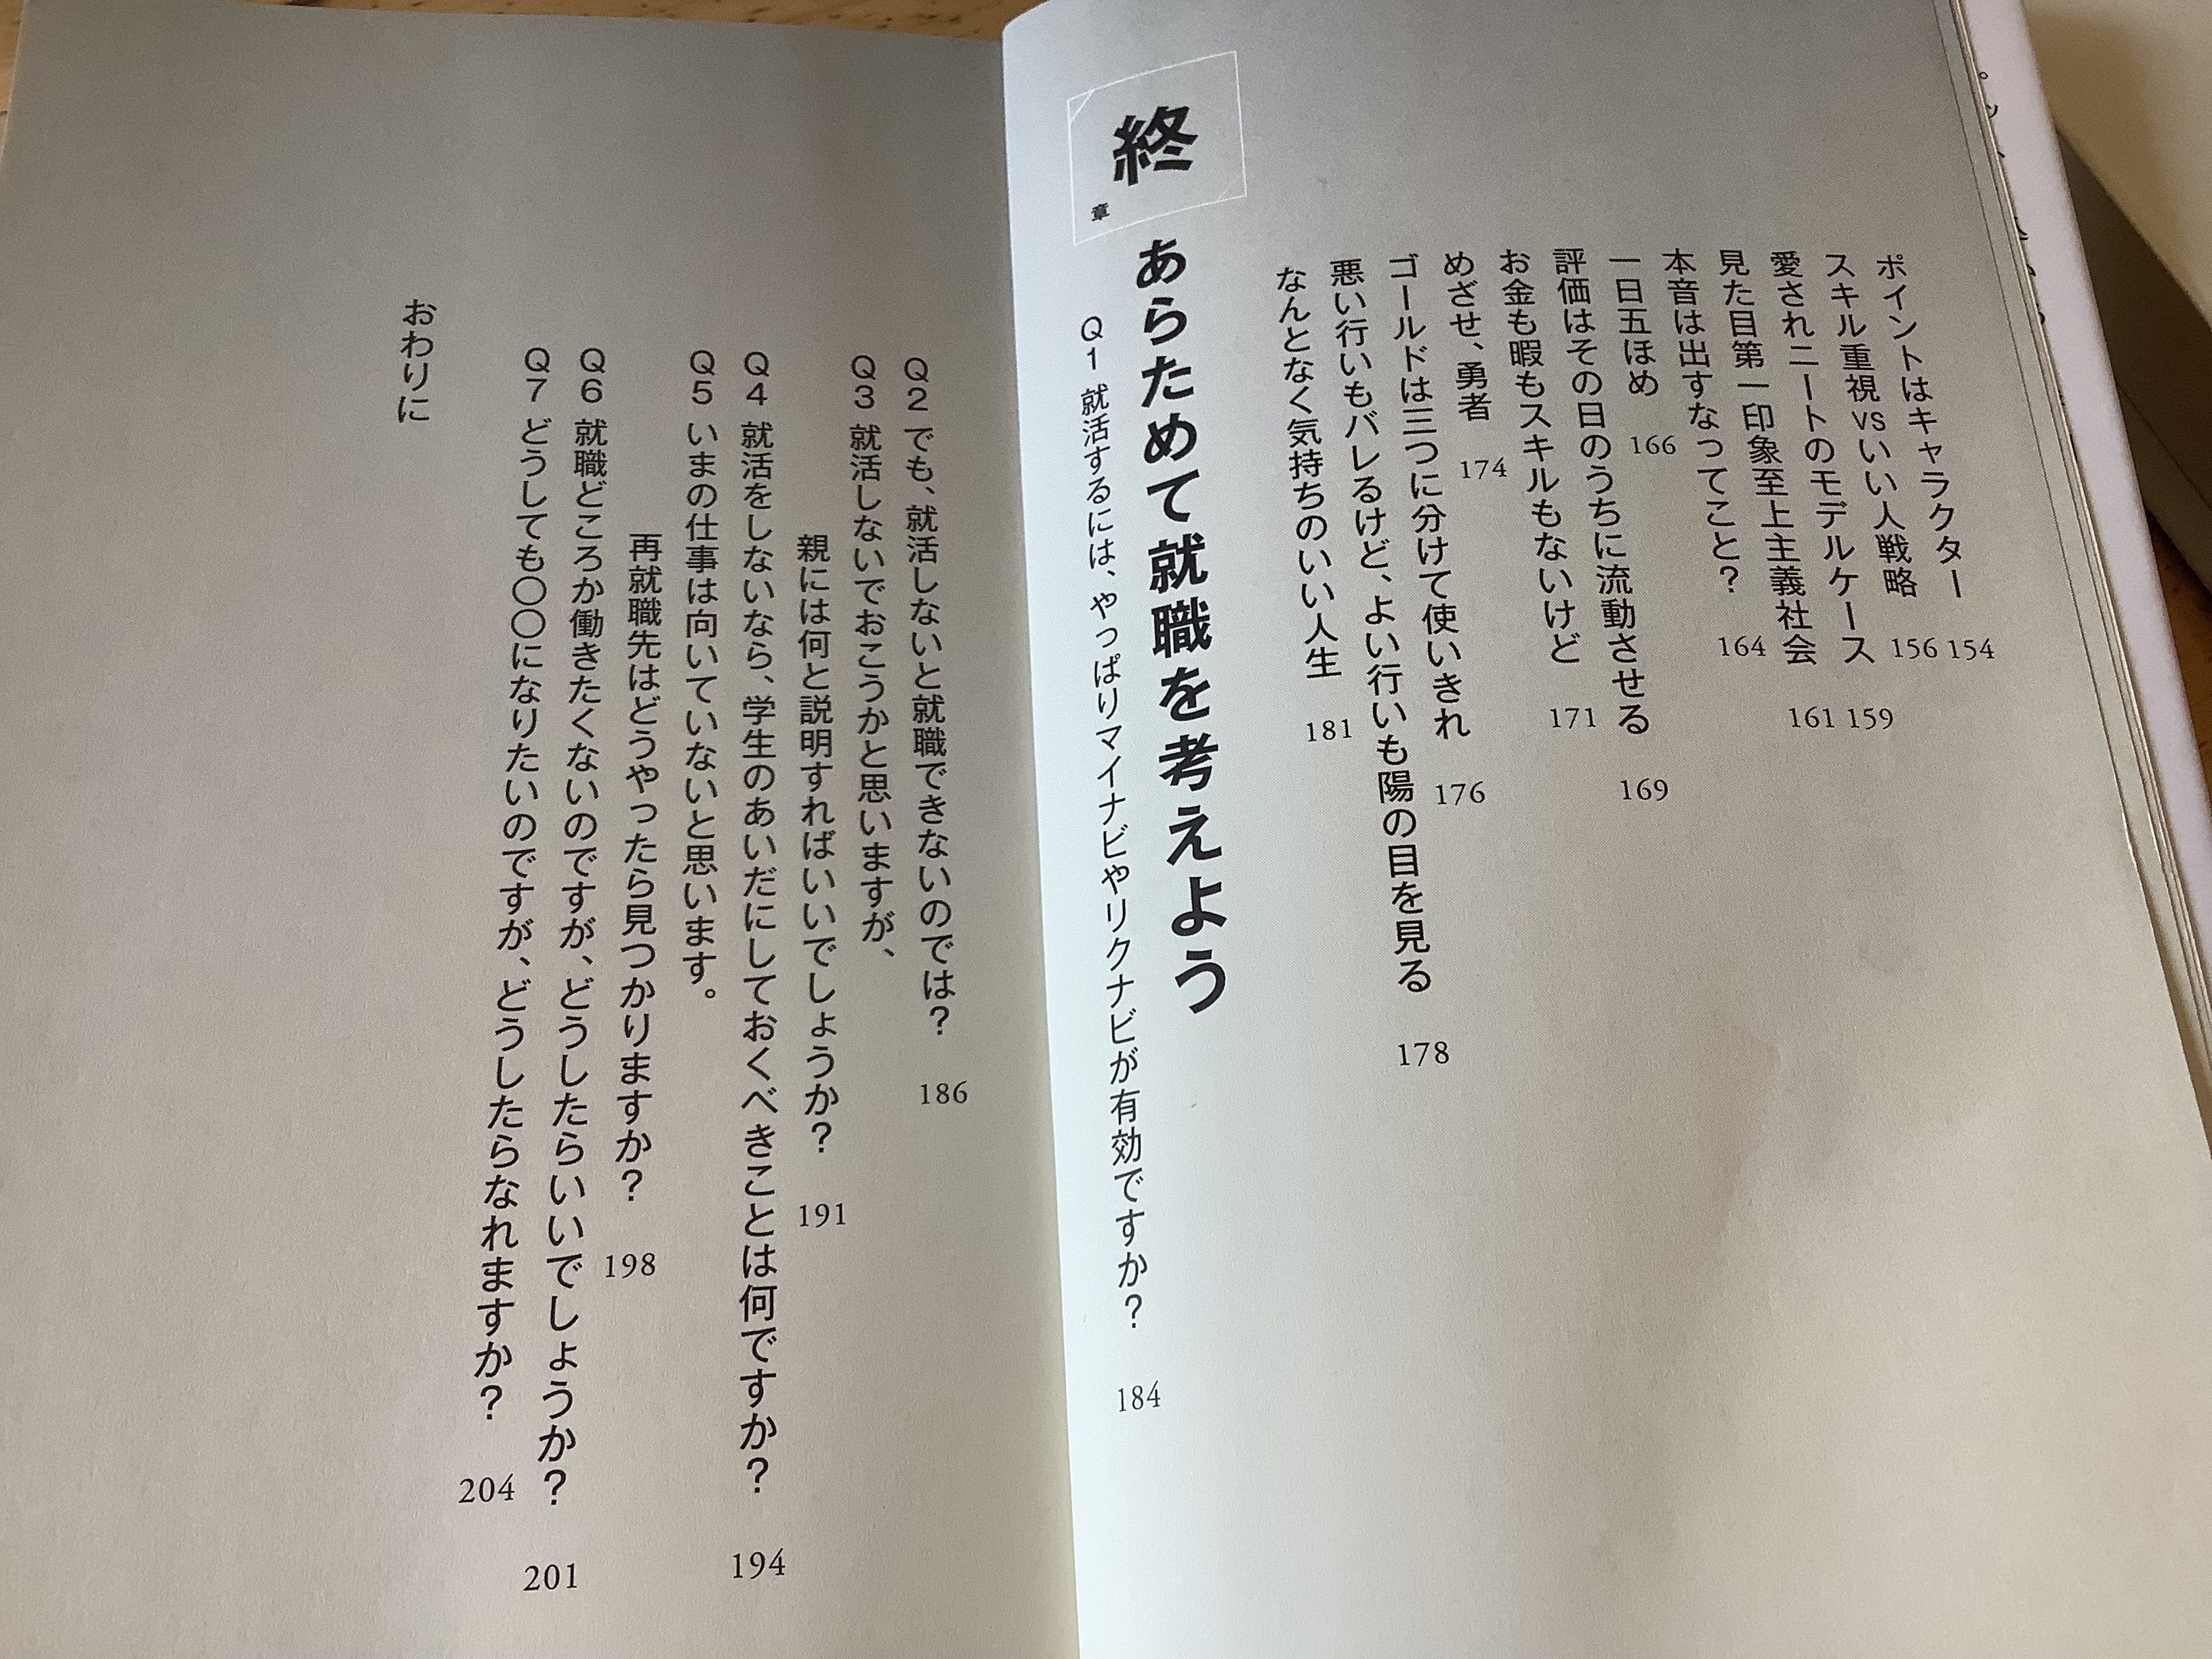 ポイントはキャラクター 154
スキル重視vsいい人戦略 156
愛されニートのモデルケース 159
見た目第一印象至上主義社会 161
本音は出すなってこと？ 164
一日五ほめ 166
評価はその日のうちに流動させる 169
お金も暇もスキルもないけど 171
めざせ、勇者 174
ゴールドは三つに分けて使いきれ 176
悪い行いもバレるけど、よい行いも陽の目を見る 178
なんとなく気持ちのいい人生 181
終章 あらためて就職を考えよう
Q1 就活するには、やっぱりマイナビやリクナビが有効ですか？ 184
Q2 でも、就活しないと就職できないのでは？ 186
Q3 就活しないでおこうかと思いますが、
親には何と説明すればいいでしょうか？ 191
Q4 就活をしないなら、学生のあいだにしておくべきことは何ですか？ 194
Q5 いまの仕事は向いていないと思います。
再就職先はどうやったら見つかりますか？ 198
Q6 就職どころか働きたくないのですが、どうしたらいいでしょうか？ 201
Q7 どうしても〇〇になりたいのですが、どうしたらなれますか？ 204
おわりに